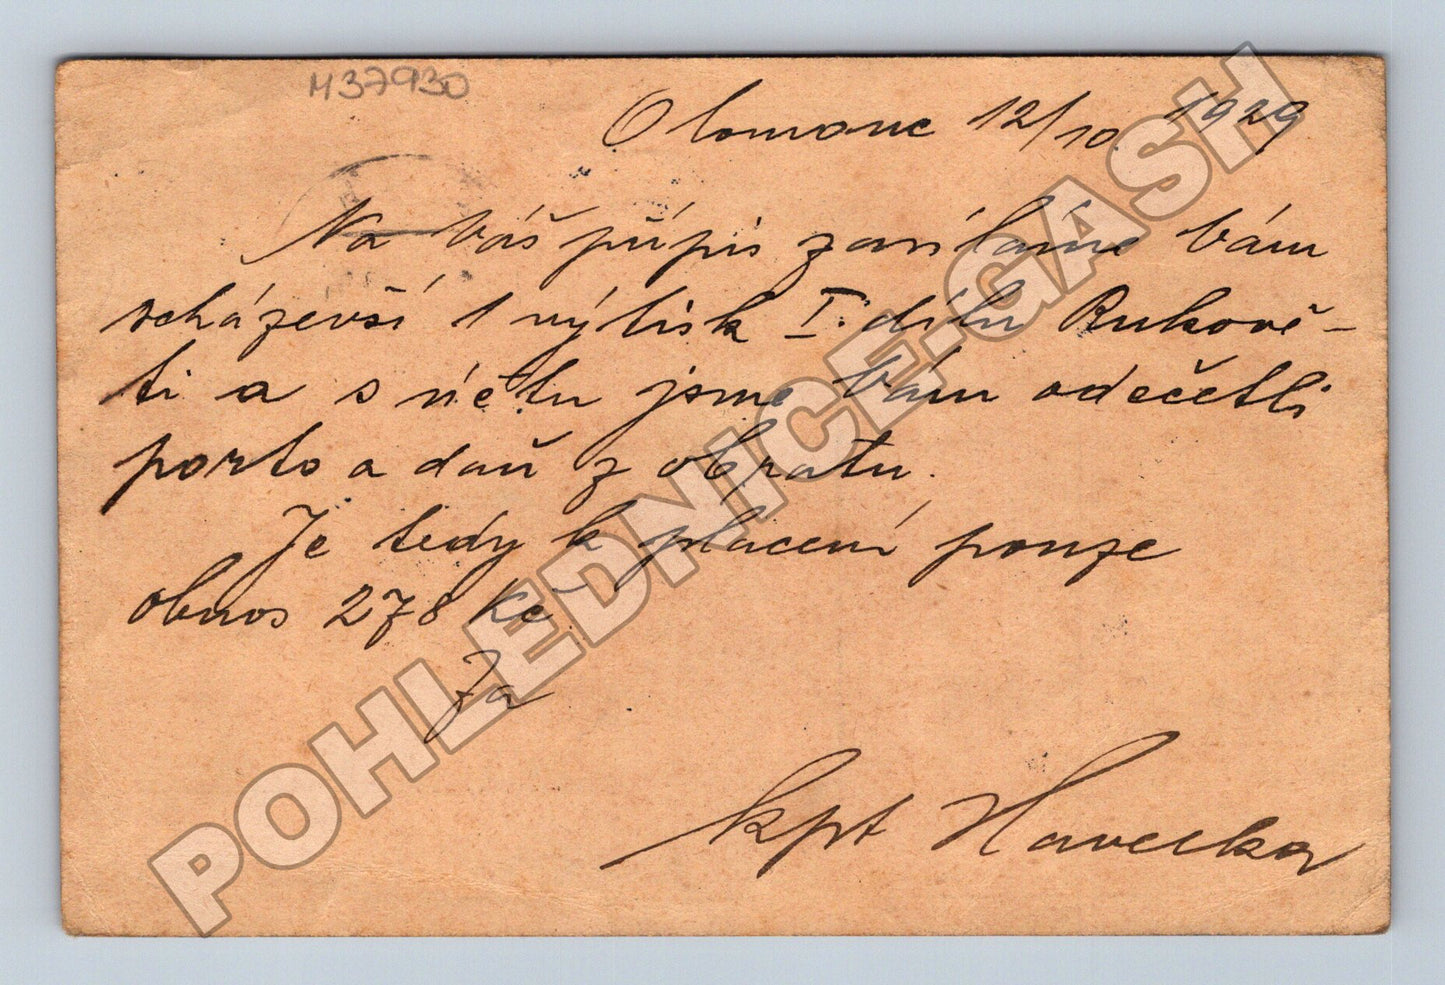 M37930
Olomouc 12/10. 1929
Na váš přípis zasíláme vám
scházevší 1 výtisk I. dílu Rukově-
ti a s účtu jsme vám odečetli
porto a daň z obratu.
Je tedy k placení pouze
obnos 278 Kč
Za
kpt Havelka
POHLEDNICE-GASH